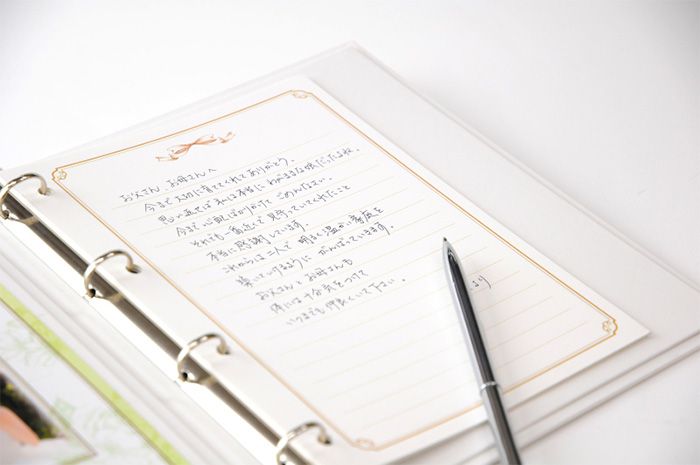 お父さん、お母さんへ
今まで大切に育ててくれてありがとう。
思い返せば私は本当にわがままな娘だったよね
今まで心配ばかりかけて ごめんなさい。
それでも一番近くで見守っていてくれたこと
本当に感謝しています。
これからは二人で 明るく温かい家庭を
築いていけるように がんばっていきます。
お父さんとお母さんも
体には十分気をつけて
いつまでも仲良くいて下さい。
より